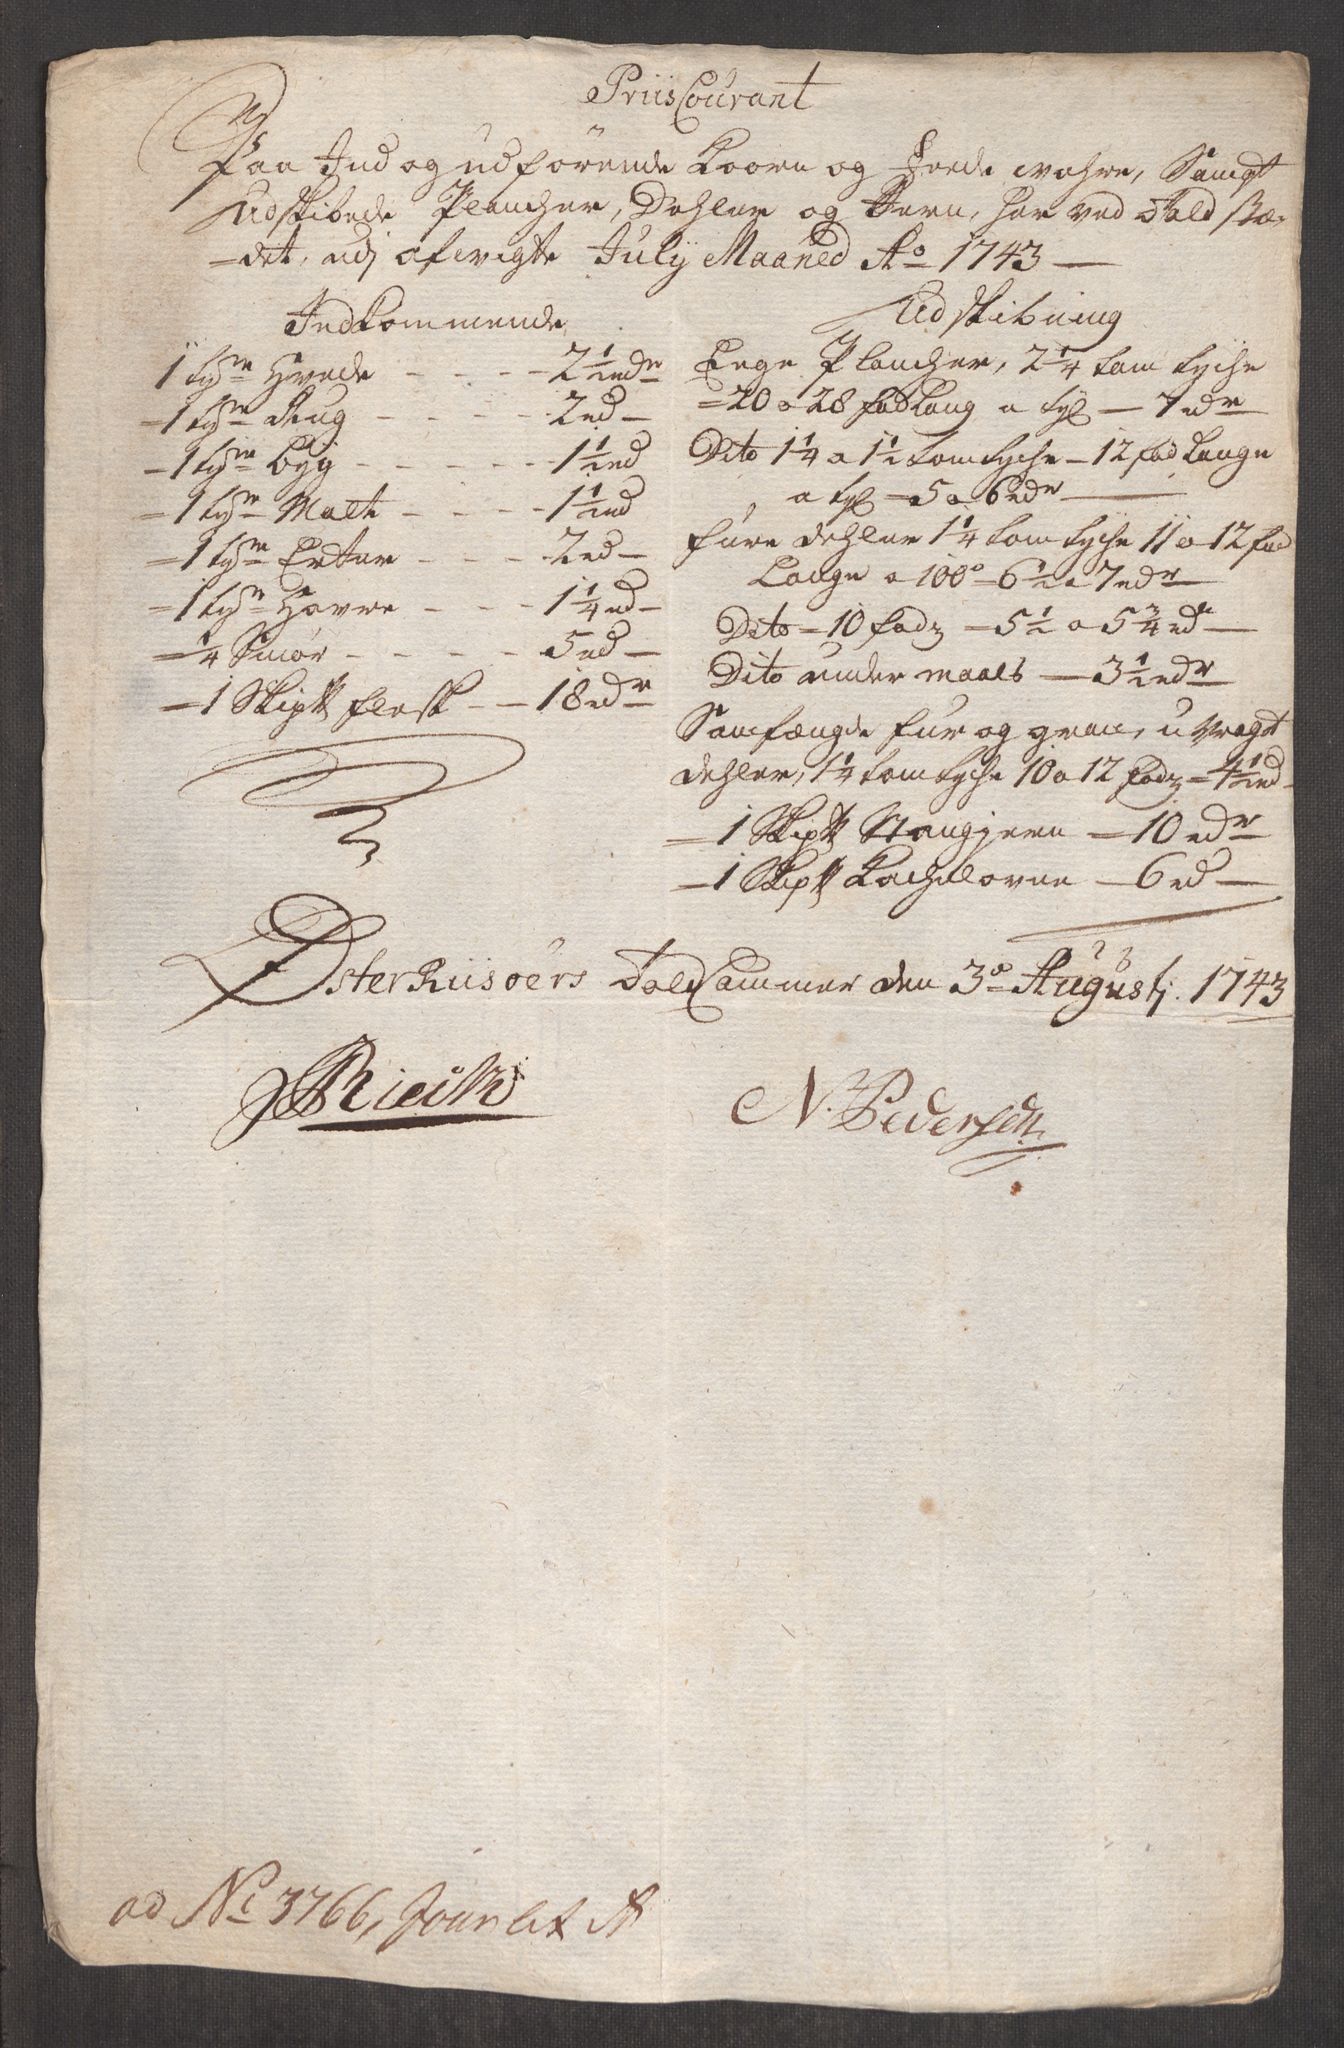 Priis Courant
Paa Ind og udförende Koorn og Feede wahre, Sampt
Udskibede Plancher, Dehler og Jern, her ved Told stæ-
=det, udj afwigte July Maaned Ao 1743
Indkommende
1 tynde Hvede - - - - 2 1/2 rdr
1 tynde Rug - - - - 2 rd
1 tynde Byg - - - - 1 1/2 rd
1 tynde Malt - - - - 1 1/2 rd
1 tynde Erter - - - 2 rd
1 tynde Havre - - - 1 1/4 rd
1/4 Smör - - - - 5 rd
1 Skip℔ flesk - - 18 rdr
Udskibning
Eege Plancher, 2 1/4 tom tyche
=20 a 28 fod lang a tylt - 7 rdr
Dito 1 1/4 a 1 1/2 tom tyche - 12 fod lange
a tylt - 5 a 6 rdr
fure dehler 1 1/4 tom tyche 11 a 12 fod
Lange a 100de - 6 1/2 a 7 rdr
Dito - 10 fodz - 5 1/2 a 5 3/4 rdr
Dito under maals - 3 1/2 rdr
Samfængde fur og gran, u vragt
dehler, 1 1/4 tom tyche 10 a 12 fodz - 4 1/2 rd
1 Skip℔ Stangjern - 10 rdr
1 Skip℔ Kachelovne - 6 rd
ÖsterRiisöers Told Cammer den 3o Augustj. 1743
N. Pedersen
ad No 3766, Jour lit A